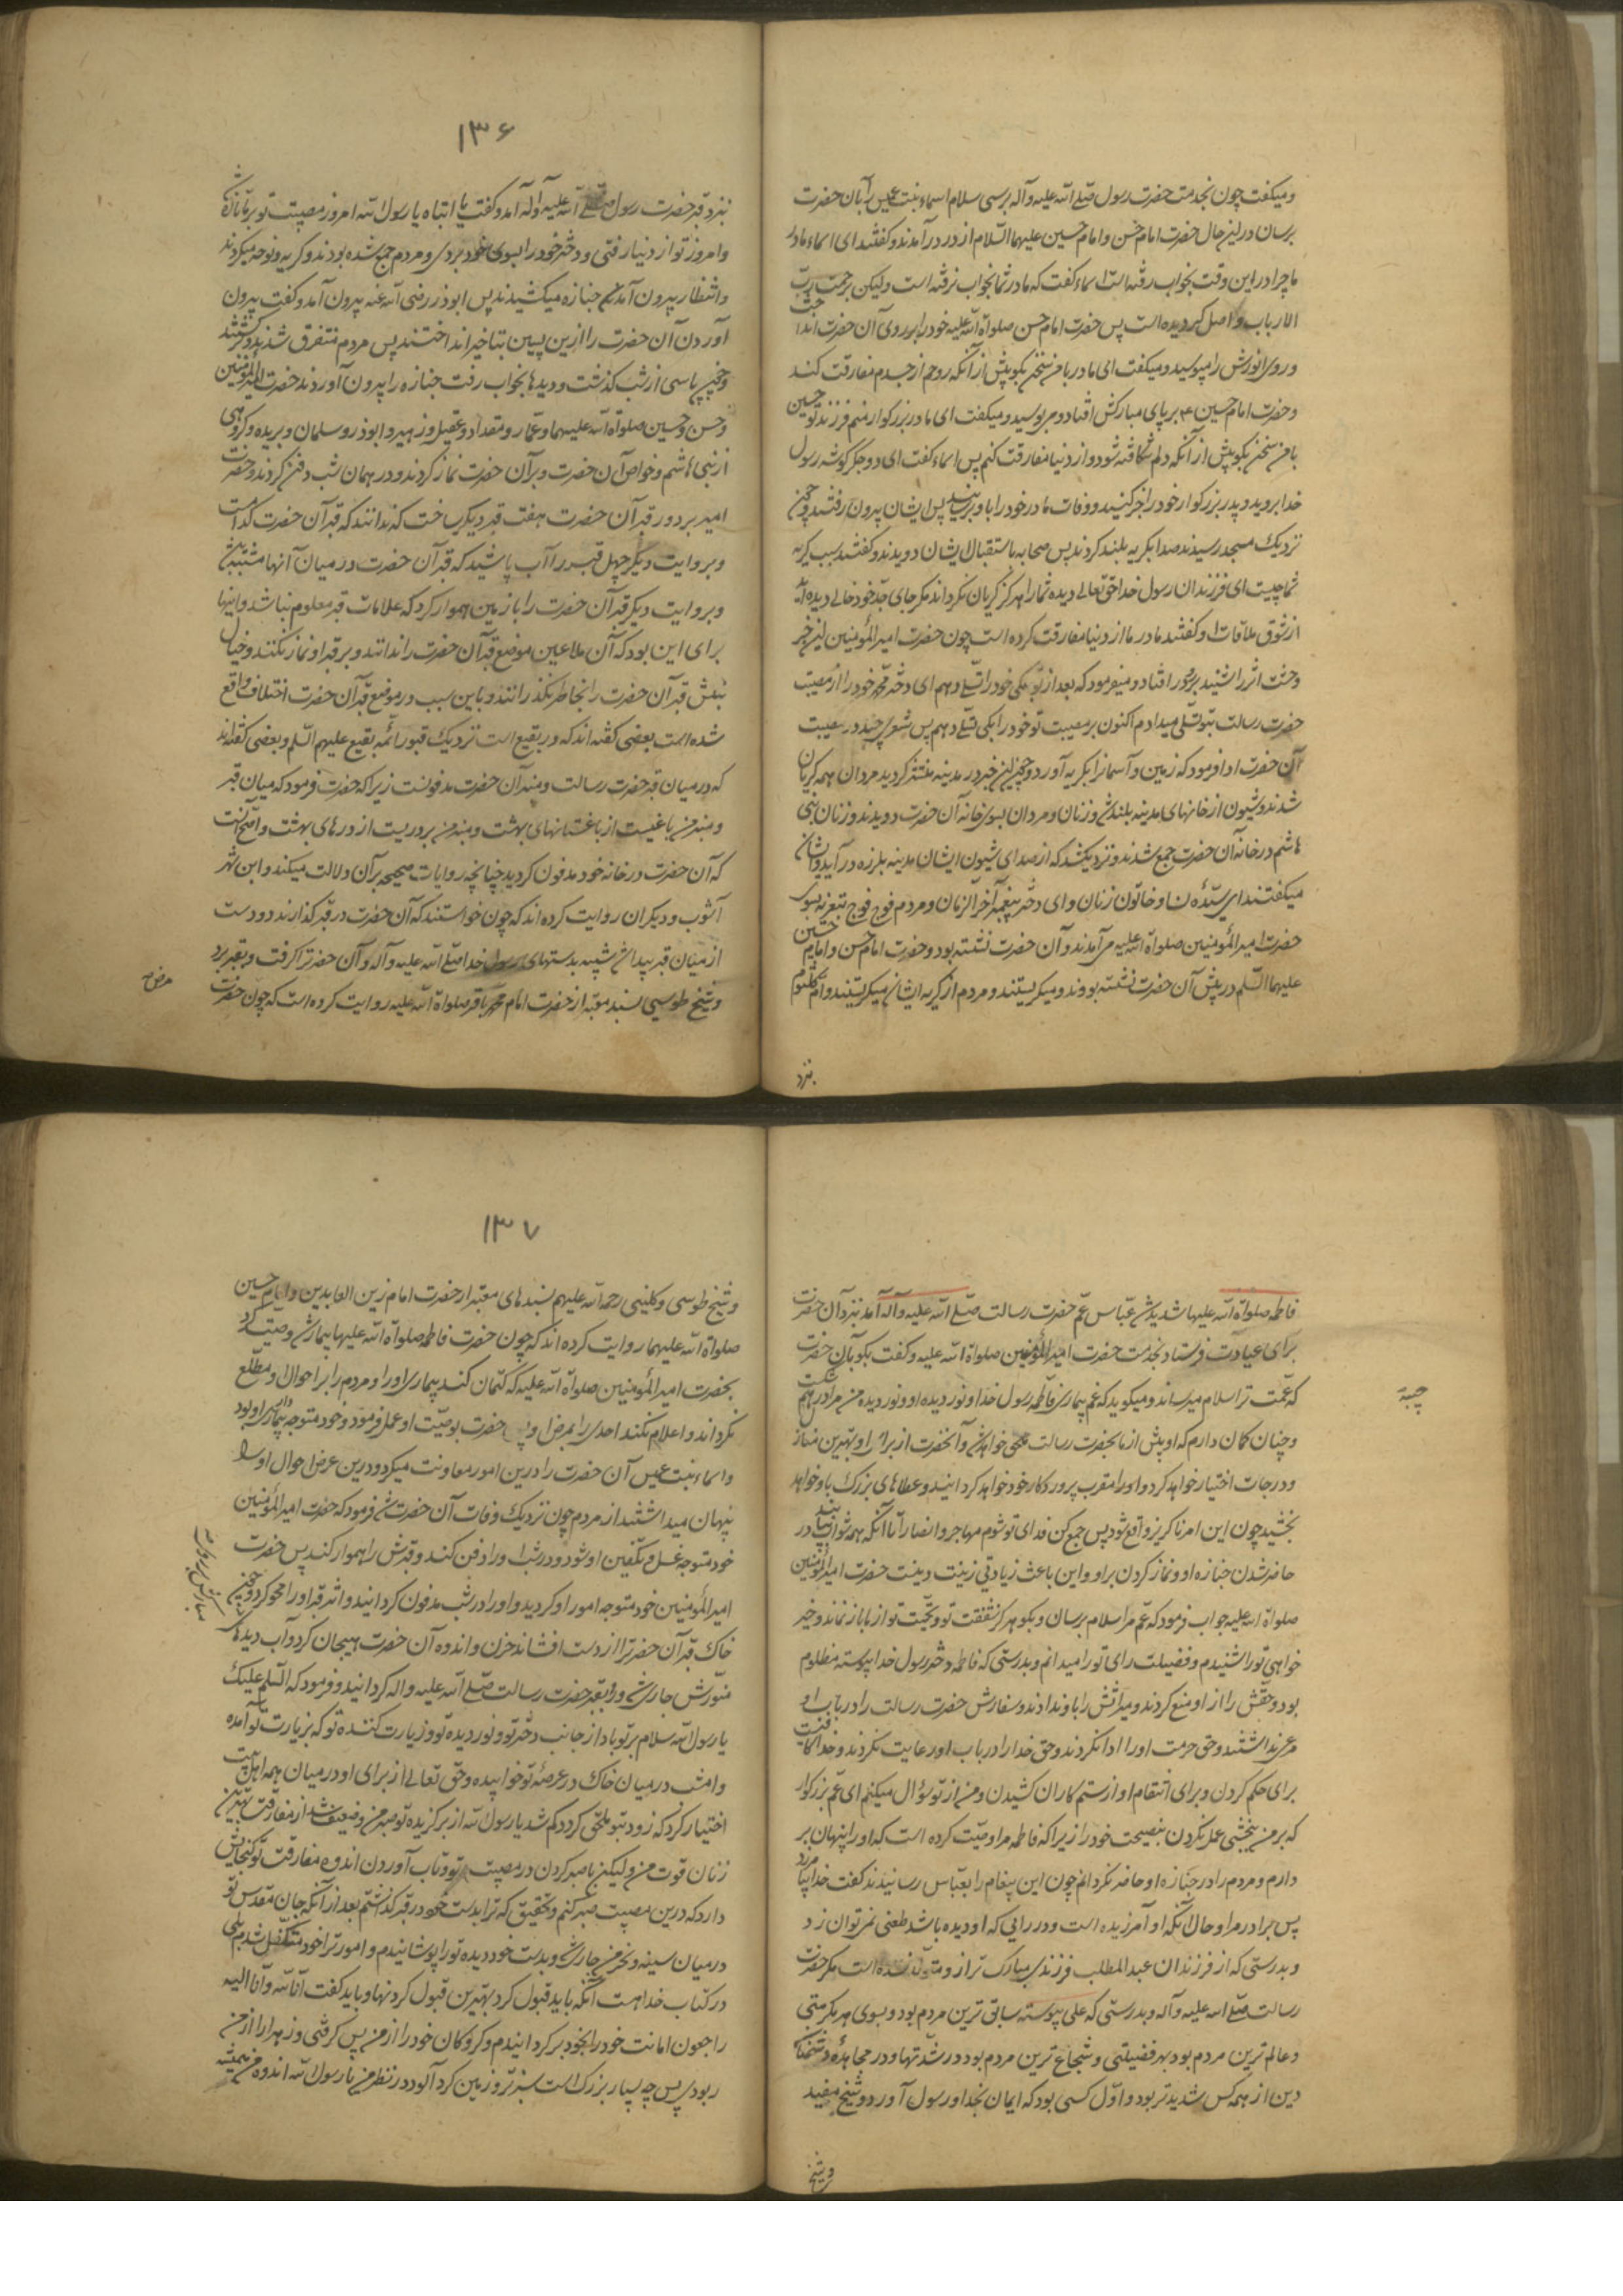 ومیکفت چون بخدمت حضرت رسول صلی الله علیه وآله برسی سلام اسماء بنت عمیس را بآن حضرت
برسان درین حال حضرت امام حسن وامام حسین علیهما السلام از در درآمدند وکفتند ای اسماء مادر
ما چرا در این وقت بخواب رفته است اسماء کفت که مادر شما بخواب نرفته است ولیکن برحمت رب
الارباب واصل کردیده است پس حضرت امام حسن صلواة الله علیه خود را بر روی آن حضرت انداخت
وروی انورش را میبوسید ومیکفت ای مادر با من سخن بکو پیش از آنکه روح از جسدم مفارقت کند
وحضرت امام حسین ع بر پای مبارکش افتاد ومیبوسید ومیکفت ای مادر بزرکوار منم فرزند تو حسین
با من سخن بکو پیش از آنکه دلم شکافته شود واز دنیا مفارقت کنم پس اسماء کفت ای دو جکرکوشه رسول
خدا بروید وپدر بزرکوار خود را خبر کنید ووفات مادر خود را باو برسانید پس ایشان بیرون رفتند وچون
نزدیک مسجد رسیدند صدا بکریه بلند کردند پس صحابه باستقبال ایشان دویدند وکفتند سبب کریه
شما چیست ای فرزندان رسول خدا حق تعالی دیده شما را هرکز کریان نکرداند مکر جای جد خود خالی دیده اید
از شوق ملاقات او کفتند مادر ما از دنیا مفارقت کرده است چون حضرت امیر المؤمنین این خبر
وحشت اثر را شنید بر رو در افتاد ومیفرمود که بعد از تو بکی خود را تسلی دهم ای دختر محمد خود را از مصیبت
حضرت رسالت بتو تسلی میدادم اکنون بر مصیبت تو خود را بکی تسلی دهم پس شعری چند در مصیبت
آن حضرت ادا فرمود که زمین وآسمان را بکریه آورد وچون این خبر در مدینه منتشر کردید مردان همه کریان
شدند وشیون از خانهای مدینه بلند شد وزنان ومردان بسوی خانه آن حضرت دویدند وزنان بنی
هاشم در خانه آن حضرت جمع شدند ونزدیک شد که از صدای شیون ایشان مدینه بلرزه درآید وایشان
میکفتند ای سیده ن او خاتون زنان وای دختر پیغمبر آخر الزمان ومردم فوج فوج بتعزیه بسوی
حضرت امیر المؤمنین صلواة الله علیه می آمدند وآن حضرت نشسته بود وحضرت امام حسن وامام حسین
علیهما السلام در پیش آن حضرت نشسته بودند ومیکریستند ومردم از کریه ایشان میکریستند وام کلثوم
نزد
۱۳۶
نزد قبر حضرت رسول صلی الله علیه وآله آمد وکفت یا ابتاه یا رسول الله امروز مصیبت تو بر ما تازه شد
وامروز تو از دنیا رفتی ودختر خود را بسوی خود بردی ومردم جمع شده بودند وکریه ونوحه میکردند
وانتظار بیرون آمدن جنازه میکشیدند پس ابوذر رضی الله عنه بیرون آمد وکفت بیرون
آوردن آن حضرت را ازین پسین بتاخیر انداختند پس مردم متفرق شدند وبرکشتند
وچون پاسی از شب کذشت ودیدها بخواب رفت جنازه را بیرون آوردند حضرت امیر المؤمنین
وحسن وحسین صلواة الله علیهما وعمار ومقداد وعقیل وزبیر وابوذر وسلمان وبریده وکروهی
از بنی هاشم وخواص آن حضرت وبر آن حضرت نماز کردند ودر همان شب دفن کردند وحضرت
امیر بر دور قبر آن حضرت هفت قبر دیکر ساخت که ندانند که قبر آن حضرت کدامست
وبروایت دیکر چهل قبر را آب پاشید که قبر آن حضرت در میان آنها مشتبه شد
وبروایت دیکر قبر آن حضرت را با زمین هموار کرد که علامات قبر معلوم نباشد واینها
برای این بود که آن ملاعین موضع قبر آن حضرت را ندانند وبر قبر او نماز نکنند وخیال
نبش قبر آن حضرت را بخاطر نکذرانند وباین سبب در موضع قبر آن حضرت اختلاف واقع
شده است بعضی کفته اند که در بقیع است نزدیک قبور ائمه بقیع علیهم السلم وبعضی کفته اند
که در میان قبر حضرت رسالت ومنبر آن حضرت مدفونست زیرا که حضرت فرمود که میان قبر
ومنبر من باغیست از باغستانهای بهشت ومنبر من بر دریست از درهای بهشت واصح آنست
که آن حضرت در خانه خود مدفون کردید چنانچه روایات صحیحه بر آن دلالت میکند وابن شهر
آشوب ودیکران روایت کرده اند که چون خواستند که آن حضرت در قبر کذارند دو دست
از میان قبر پیدا شد شبیه بدستهای رسول خدا صلی الله علیه وآله وآن حضرترا کرفت وبقبر برد
وشیخ طوسی بسند معتبر از حضرت امام محمد باقر صلواة الله علیه روایت کرده است که چون حضرت
مرض
فاطمه صلواة الله علیها شدید شد عباس عم حضرت رسالت صلی الله علیه وآله آمد نزد آن حضرت
برای عیادت فرستاد بخدمت حضرت امیر المؤمنین صلواة الله علیه وکفت بکو بآن حضرت
که عمت ترا سلام میرساند ومیکوید که غم بیماری فاطمه رسول خدا ونور دیده او ونور دیده من مرا درهم شکست
چبة
وچنان کمان دارم که او پیش از ما بحضرت رسالت ملحق خواهد شد وآنحضرت از برای او بهترین منازل
ودرجات اختیار خواهد کرد واو را مقرب پروردکار خود خواهد کردانید وعطاهای بزرک باو خواهد
بخشید چون این امر ناکریز واقع شود پس جمع کن فدای تو شوم مهاجر وانصار را تا آنکه همه ثواب یابند در
حاضر شدن جنازه او ونماز کردن بر او واین باعث زیادتی زینت دینست حضرت امیر المؤمنین
صلواة الله علیه جواب فرمود که عم مرا سلام برسان وبکو هرکز شفقت تو ومحبت تو از ما باز نماند وخیر
خواهی تو را شنیدم وفضیلت رای تو را میدانم وبدرستی که فاطمه دختر رسول خدا پیوسته مظلوم
بود وحقش را از او منع کردند ومیراثش را باو ندادند وسفارش حضرت رسالت را در باب او
مرعی نداشتند وحق حرمت او را ادا نکردند وحق خدا را در باب او رعایت نکردند وخدا کافیست
برای حکم کردن وبرای انتقام او از ستم کاران کشیدن ومن از تو سؤال میکنم ای عم بزرکوار
که بر من ببخشی عمل نکردن بنصیحت خود را زیرا که فاطمه مرا وصیت کرده است که او را پنهان بر
دارم ومردم را در جنازه او حاضر نکردانم چون این پیغام را بعباس رسانیدند کفت خدا بیامرزد
پسر برادر مرا وحال آنکه او آمرزیده است ودر رایی که او دیده باشد طعنی نمیتوان زد
وبدرستی که از فرزندان عبد المطلب فرزندی مبارک تر از و متولد نشده است مکر حضرت
رسالت صلی الله علیه وآله وبدرستی که علی پیوسته سابق ترین مردم بود وبسوی هر مکرمتی
وعالم ترین مردم بود بهر فضیلتی وشجاع ترین مردم بود در شدتها ودر مجاهده دشمنان
دین از همه کس شدیدتر بود واول کسی بود که ایمان بخدا ورسول آورد وشیخ مفید
وشیخ
۱۳۷
وشیخ طوسی وکلینی رحمة الله علیهم بسندهای معتبر از حضرت امام زین العابدین وامام حسین
صلواة الله علیهما روایت کرده اند که چون حضرت فاطمه صلواة الله علیها بیمار شد وصیت کرد
بحضرت امیر المؤمنین صلواة الله علیه که کتمان کند بیماری او را ومردم را بر احوال او مطلع
نکرداند واعلام نکند احدی را بمرض او حضرت بوصیت او عمل فرمود وخود متوجه بیمارداری او بود
واسماء بنت عمیس آن حضرت را درین امور معاونت میکرد ودرین عرض احوال او را
پنهان میداشتند از مردم چون نزدیک وفات آن حضرت شد فرمود که حضرت امیر المؤمنین
خود متوجه غسل وتکفین او شود ودر شب او را دفن کند وقبرش را هموار کند پس حضرت
امیر المؤمنین خود متوجه امور او کردید واو را در شب مدفون کردانید واثر قبر او را محو کرد وچون
خاک قبر آن حضرترا از دست افشاند حزن واندوه آن حضرت هیجان کرد وآب دیدهای
مبارکش بر روی
منورش جاری شد ورو بقبر حضرت رسالت صلی الله علیه واله کردانید وفرمود که السلم علیک
یا رسول الله سلام بر تو باد از جانب دختر تو ونور دیده تو وزیارت کننده تو که بزیارت تو آمده
وامشب در میان خاک در عرصه تو خوابیده وحق تعالی از برای او در میان همه اهل بیت
اختیار کرد که زود بتو ملحق کردد کم شد یا رسول الله از برکزیده تو صبر من وضعیف شد از مفارقت بهترین
زنان قوت من ولیکن با صبر کردن در مصیبت تو وتاب آوردن اندوه مفارقت تو کنجایش
دارد که درین مصیبت صبر کنم وبتحقیق که ترا بدست خود در قبر کذاشتم بعد از آنکه جان مقدس تو
در میان سینه ونحر من جاری شد وبدست خود دیده تو را پوشانیدم وامور ترا خود متکفل شدم بلی
در کتاب خدا هست آنکه باید قبول کرد بهترین قبول کردنها وباید کفت انا لله وانا الیه
راجعون امانت خود را بخود برکردانیدم وکروکان خود را از من پس کرفتی وزهرا را از من
ربودی پس چه بسیار بزرک است سبزه وزمین کرد آلود در نظر من یا رسول الله اندوه من همیشه